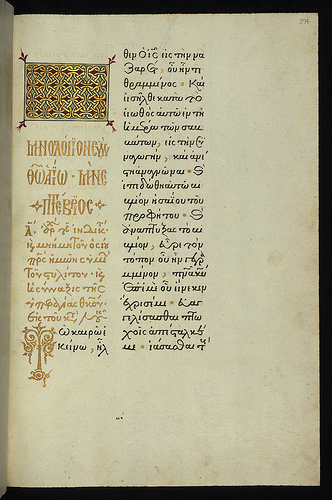 ΜΗΝΟΛΟΓΙΟΝ ΣΥΝ
ΘΩ ΑΓΙΩ · ΜΗΝ ΣΕ
ΠΤΕΒΡΙΟΣ
μνήμη τοῦ ὁσίου
πρς ἡμῶν συμε
τοῦ στυλίτου ·
ἡ σύναξις τῆς
Τῶ καιρῶ ἐ
κείνω, ἦλ
θεν ὁ ις εἰς τὴν να
ζαρετ, οὗ ἦν τε
θραμμένος · Καὶ
εἰσῆλθε κατὰ τὸ
εἰωθὸς αὐτῶ ἐν τῆ
ἡμέρα τῶν σαβ
βάτων, εἰς τὴν συ
ναγωγὴν, καὶ ἀνέ
στη ἀναγνῶναι · καὶ
ἐπεδόθη αὐτῶ βι
βλίον ἡσαΐου τοῦ
προφήτου · καὶ
ἀναπτύξας τὸ βι
βλίον, εὗρε τὸν
τόπον οὗ ἦν γεγρα
μμένον, πνα κυ
ἐπ' ἐμὲ οὗ εἵνεκεν
ἔχρισέ με · εὐαγ
γελίσασθαι πτω
χοῖς ἀπέσταλκέ
με · ἰάσασθαι τ